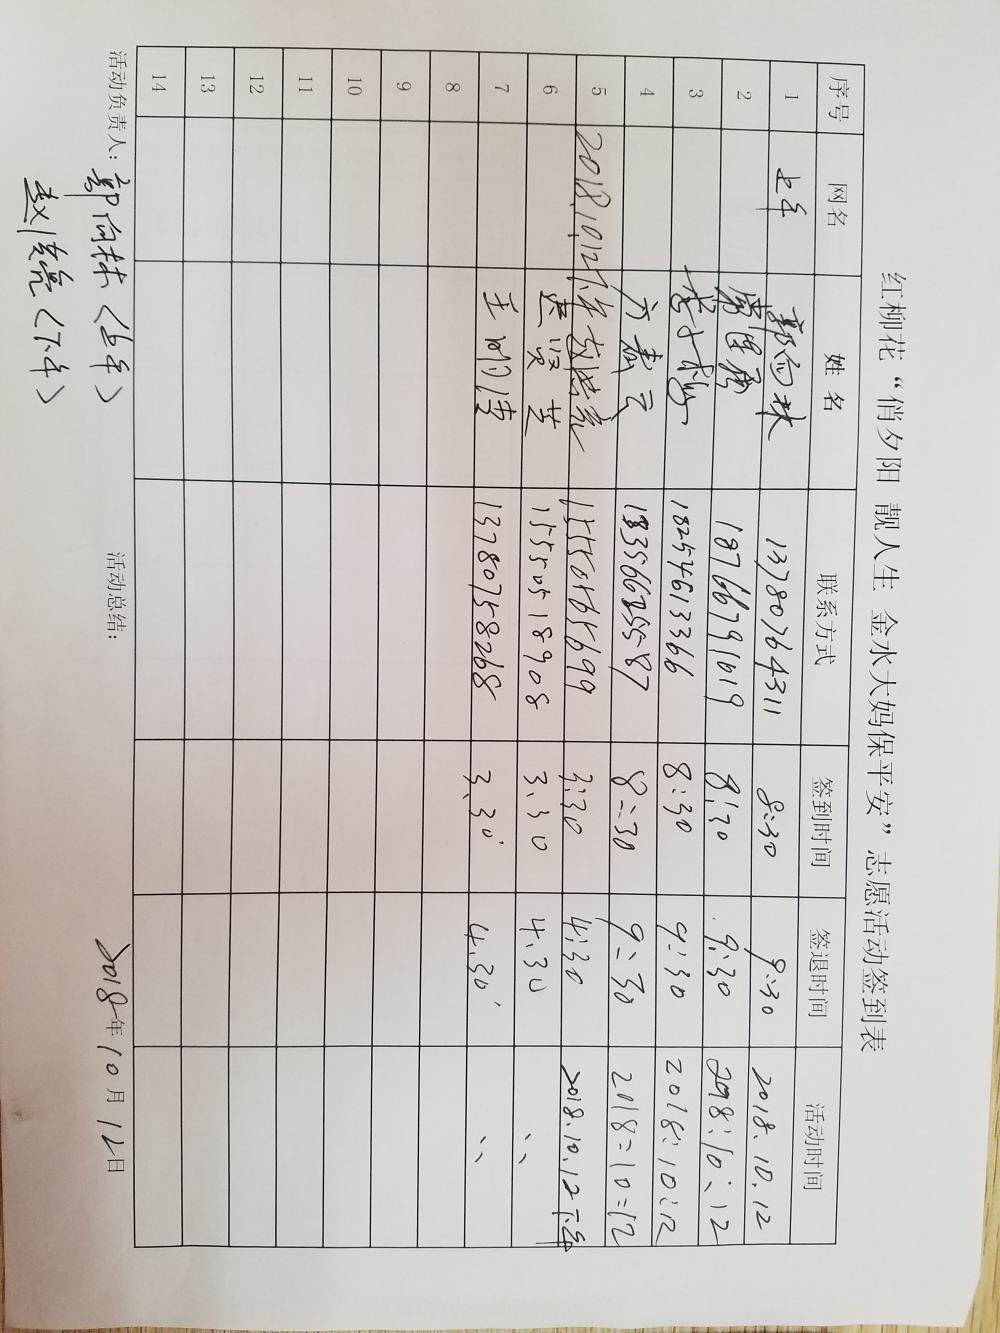 红柳花“俏夕阳 靓人生 金水大妈保平安”志愿活动签到表
序号 网名 姓名 联系方式 签到时间 签退时间 活动时间
1 上午 郭向林 13780764311 8:30 9:30 2018.10.12
2 18766791019 8:30 9:30 2018:10:12
3 18254613366 8:30 9:30 2018:10:12
4 8:30 9:30 2018=10=12
5 2018.10.12下午 15550565699 3:30 4:30 2018.10.12下午
6 15550518908 3.30 4.30 〃
7 王明清 13780758268 3.30' 4.30' 〃
8
9
10
11
12
13
14
活动负责人：郭向林（上午） 活动总结： 2018年10月12日
赵洪亮（下午）